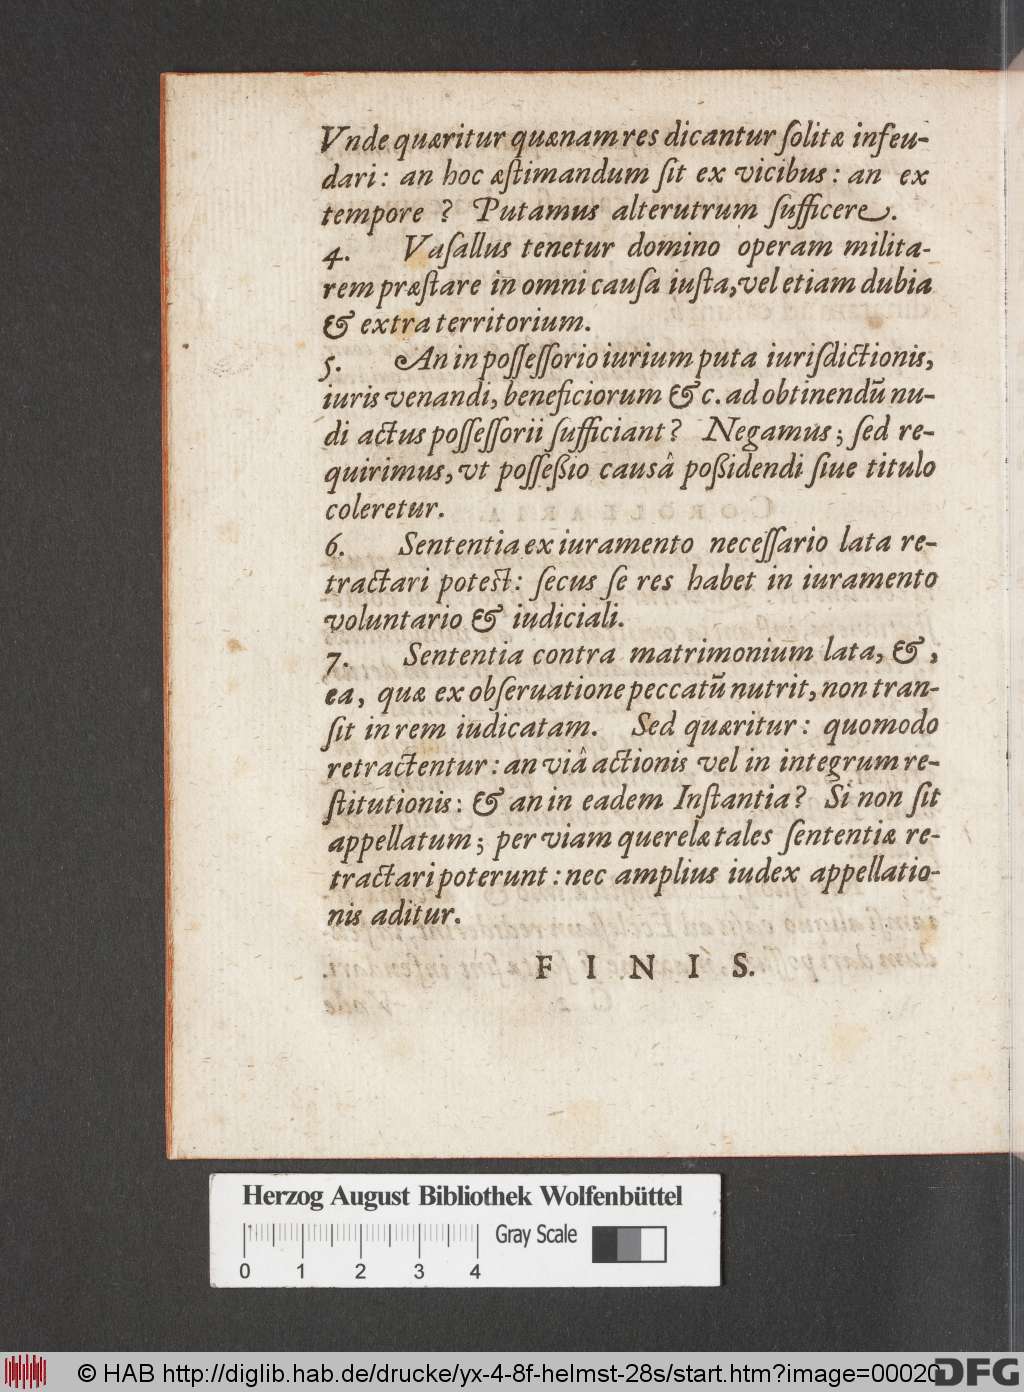 Vnde quæritur quænam res dicantur ſolitæ infeu-
dari: an hoc æſtimandum ſit ex vicibus: an ex
tempore ? Putamus alterutrum ſufficere.
4. Vaſallus tenetur domino operam milita-
rem præſtare in omni cauſa iuſta, vel etiam dubia
& extra territorium.
5. An in poſſeſſorio iurium puta iuriſdictionis,
iuris venandi, beneficiorum & c. ad obtinendū nu-
di actus poſſeſſorii ſufficiant? Negamus; ſed re-
quirimus, vt poſſeßio causâ poßidendi ſiue titulo
coleretur.
6. Sententia ex iuramento neceſſario lata re-
tractari potest: ſecus ſe res habet in iuramento
voluntario & iudiciali.
7. Sententia contra matrimonium lata, & ,
ea, quæ ex obſeruatione peccatū nutrit, non tran-
ſit in rem iudicatam. Sed quæritur: quomodo
retractentur: an viâ actionis vel in integrum re-
ſtitutionis: & an in eadem Inſtantia? Si non ſit
appellatum; per viam querelæ tales ſententiæ re-
tractari poterunt: nec amplius iudex appellatio-
nis aditur.
F I N I S.
Herzog August Bibliothek Wolfenbüttel
Gray Scale
0 1 2 3 4
© HAB http://diglib.hab.de/drucke/yx-4-8f-helmst-28s/start.htm?image=00020
DFG